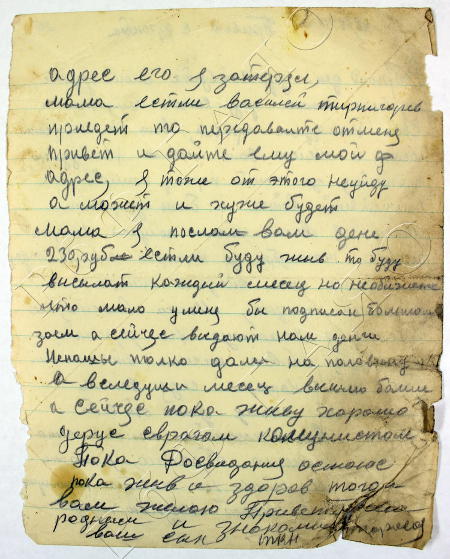 адрес его я затерял,
мама естли василей тирпигорев
приедет то передавайте отмен
привет и дайте ему мой
адрес, я тоже от этого неуйду
а может и хуже будет
мама я послал вам дене
230 рубле естли буду жив то буду
висилат каждий месец но необижаете
что мало уменя бил подписан болшои
заем а сейчес видают нам денги
толко дали на половину
в вследущи месец вишлю болше
а сейчес пока живу хорошо
дерус сврагом комунистом
Пока Досведания остаюс
пока жив и здоров того
вам желаю Привет всем
родным и знакомим
ваш син